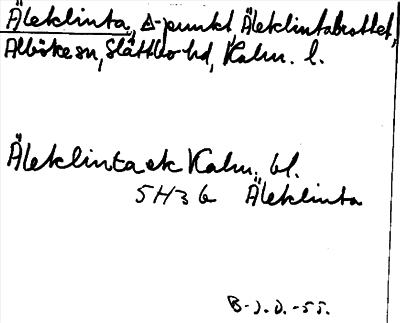 Äleklinta, Δ-punkt, Äleklintabrottet,
Alböke sn, Slättbo hd, Kalm. l.
Äleklinta ek Kalm. bl.
5H3b Äleklinta
B-J.O.-55.